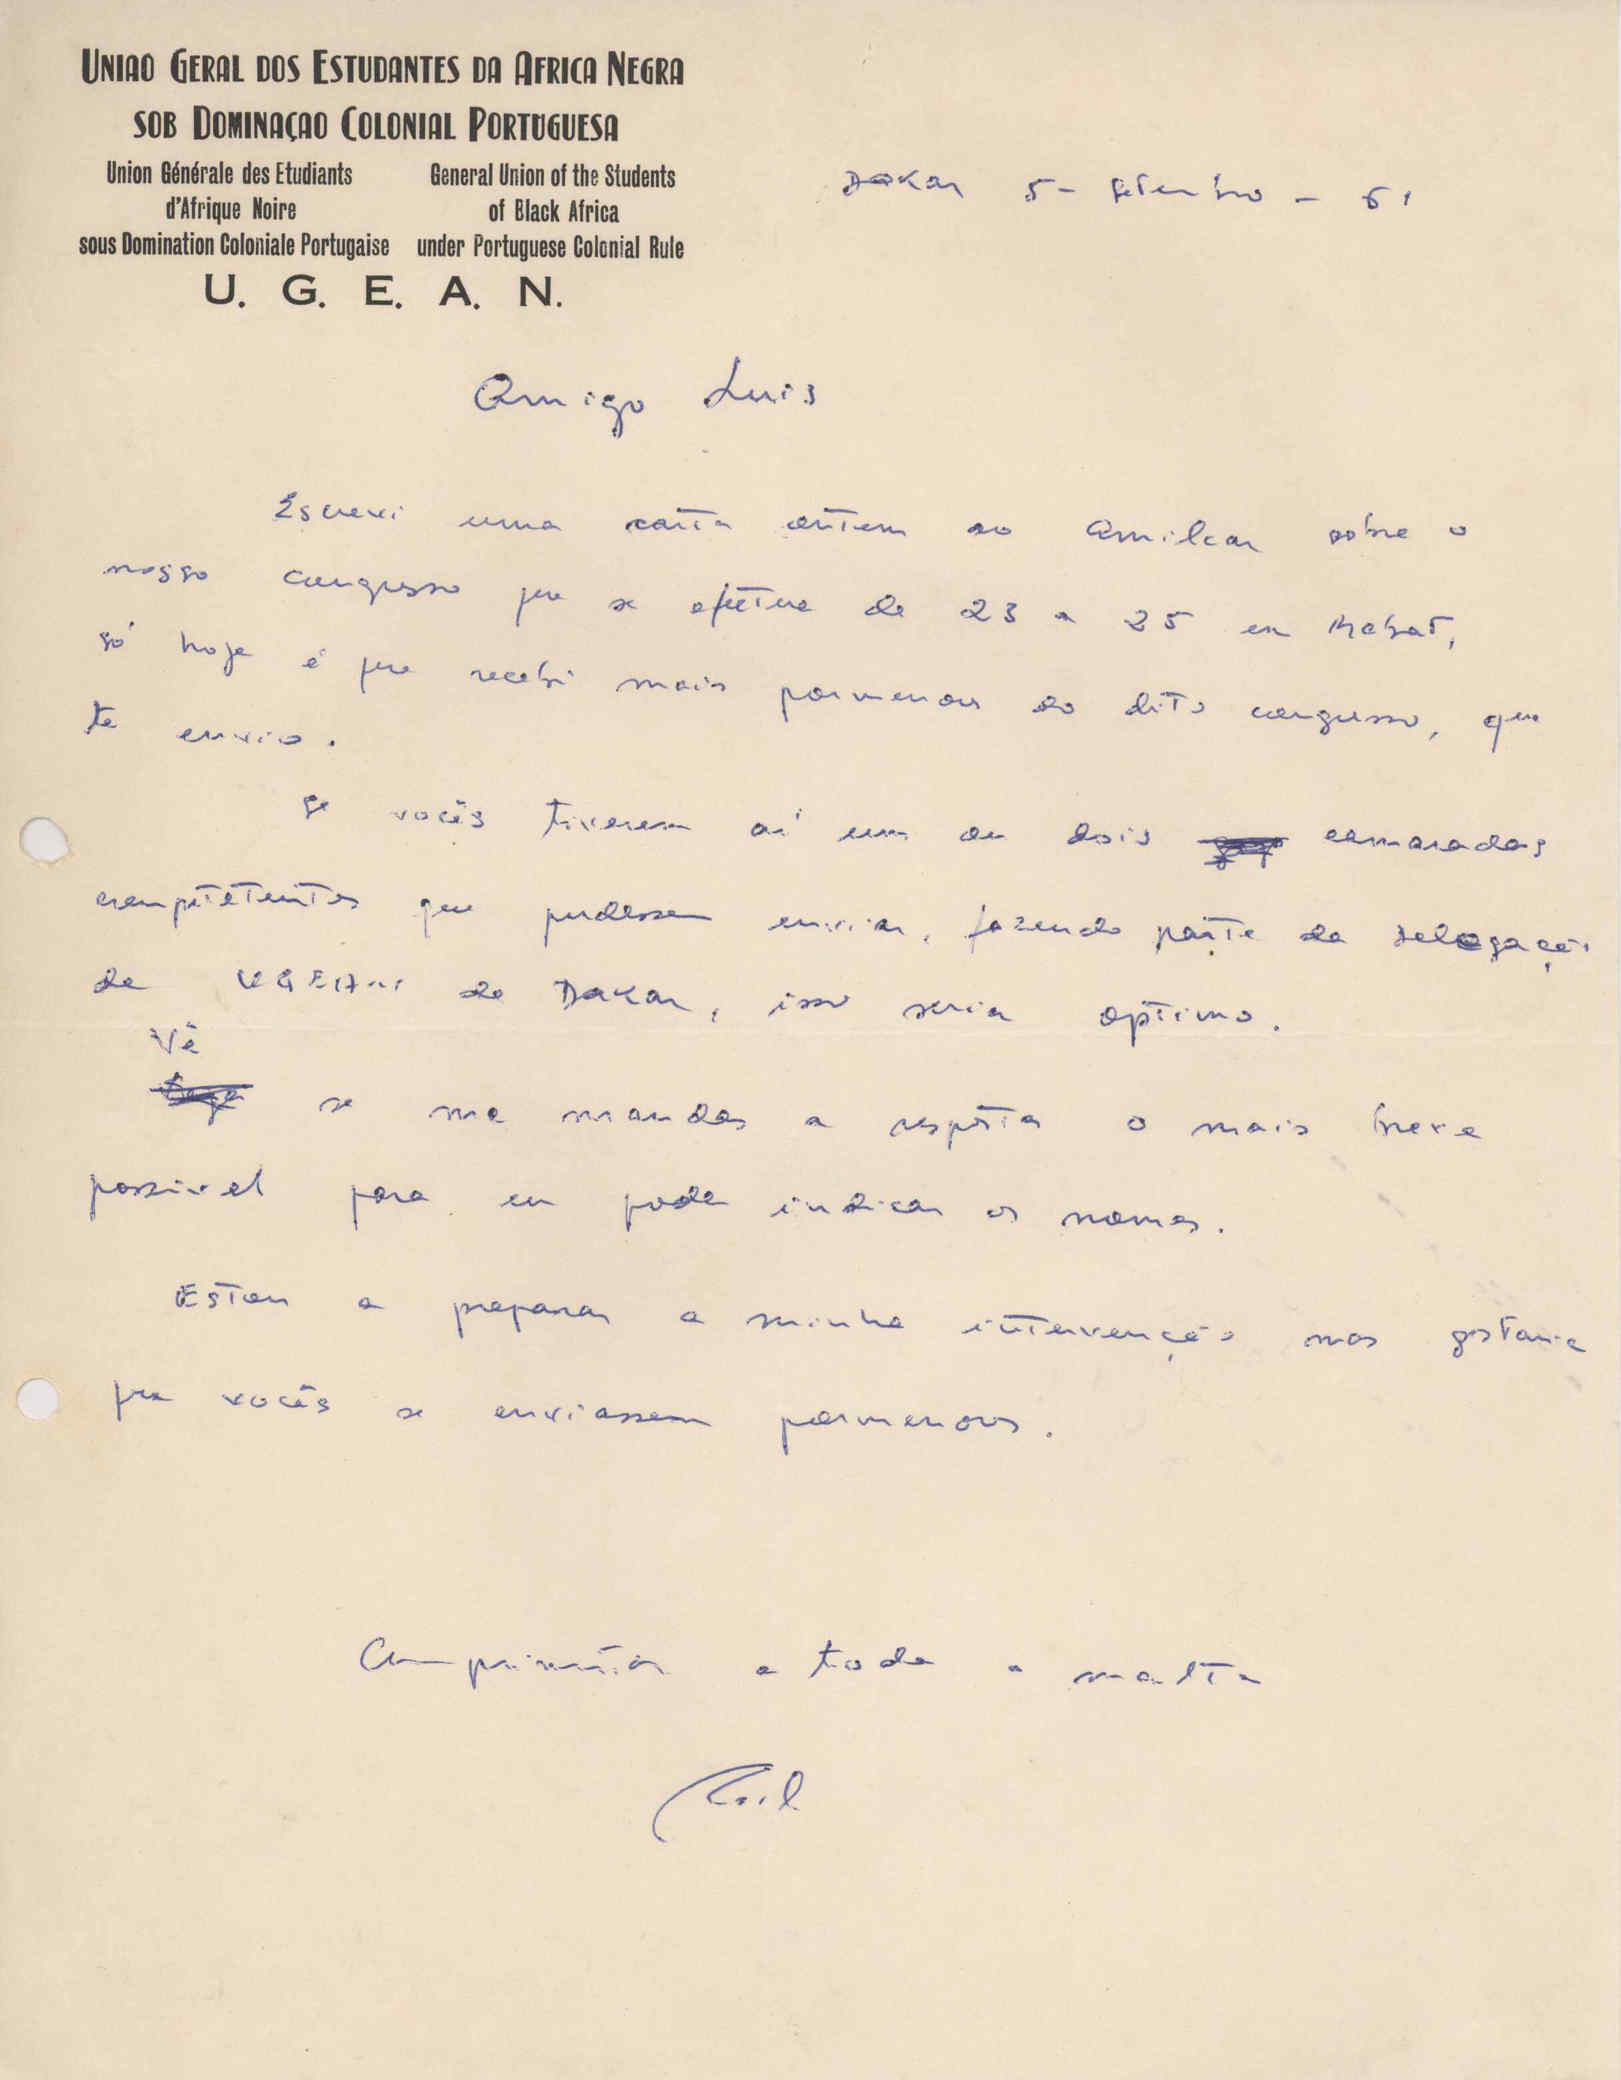 UNIAO GERAL DOS ESTUDANTES DA AFRICA NEGRA
SOB DOMINAÇAO COLONIAL PORTUGUESA
Union Générale des Etudiants
d'Afrique Noire
sous Domination Coloniale Portugaise
General Union of the Students
of Black Africa
under Portuguese Colonial Rule
U. G. E. A. N.
Dakar 5 - Setembro - 61
Amigo Luis
Escrevi uma carta ontem ao Amilcar sobre o
nosso congresso que se efetua de 23 a 25 em Rabat,
só hoje é que recebi mais pormenores do dito congresso, que
te envio.
Se vocês tiverem aí um ou dois camaradas
que pudessem enviar, fazendo parte da delegação
da UGEAN de Dakar, isso seria optimo.
Vê
se me mandas a resposta o mais breve
possivel para eu poder indicar os nomes.
Estou a preparar a minha intervenção mas gostaria
que vocês enviassem pormenores.
a toda a malta